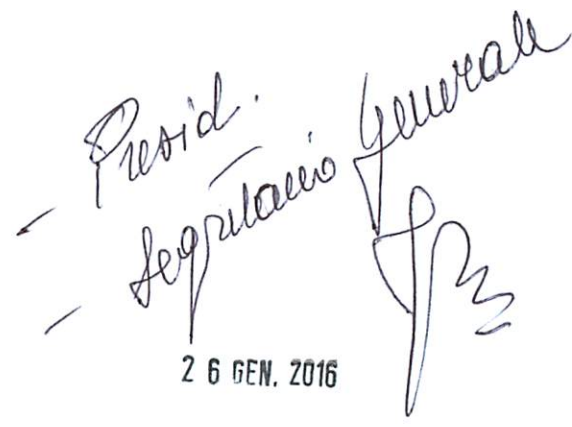 - Presid.
- Segretario Generale
26 GEN. 2016